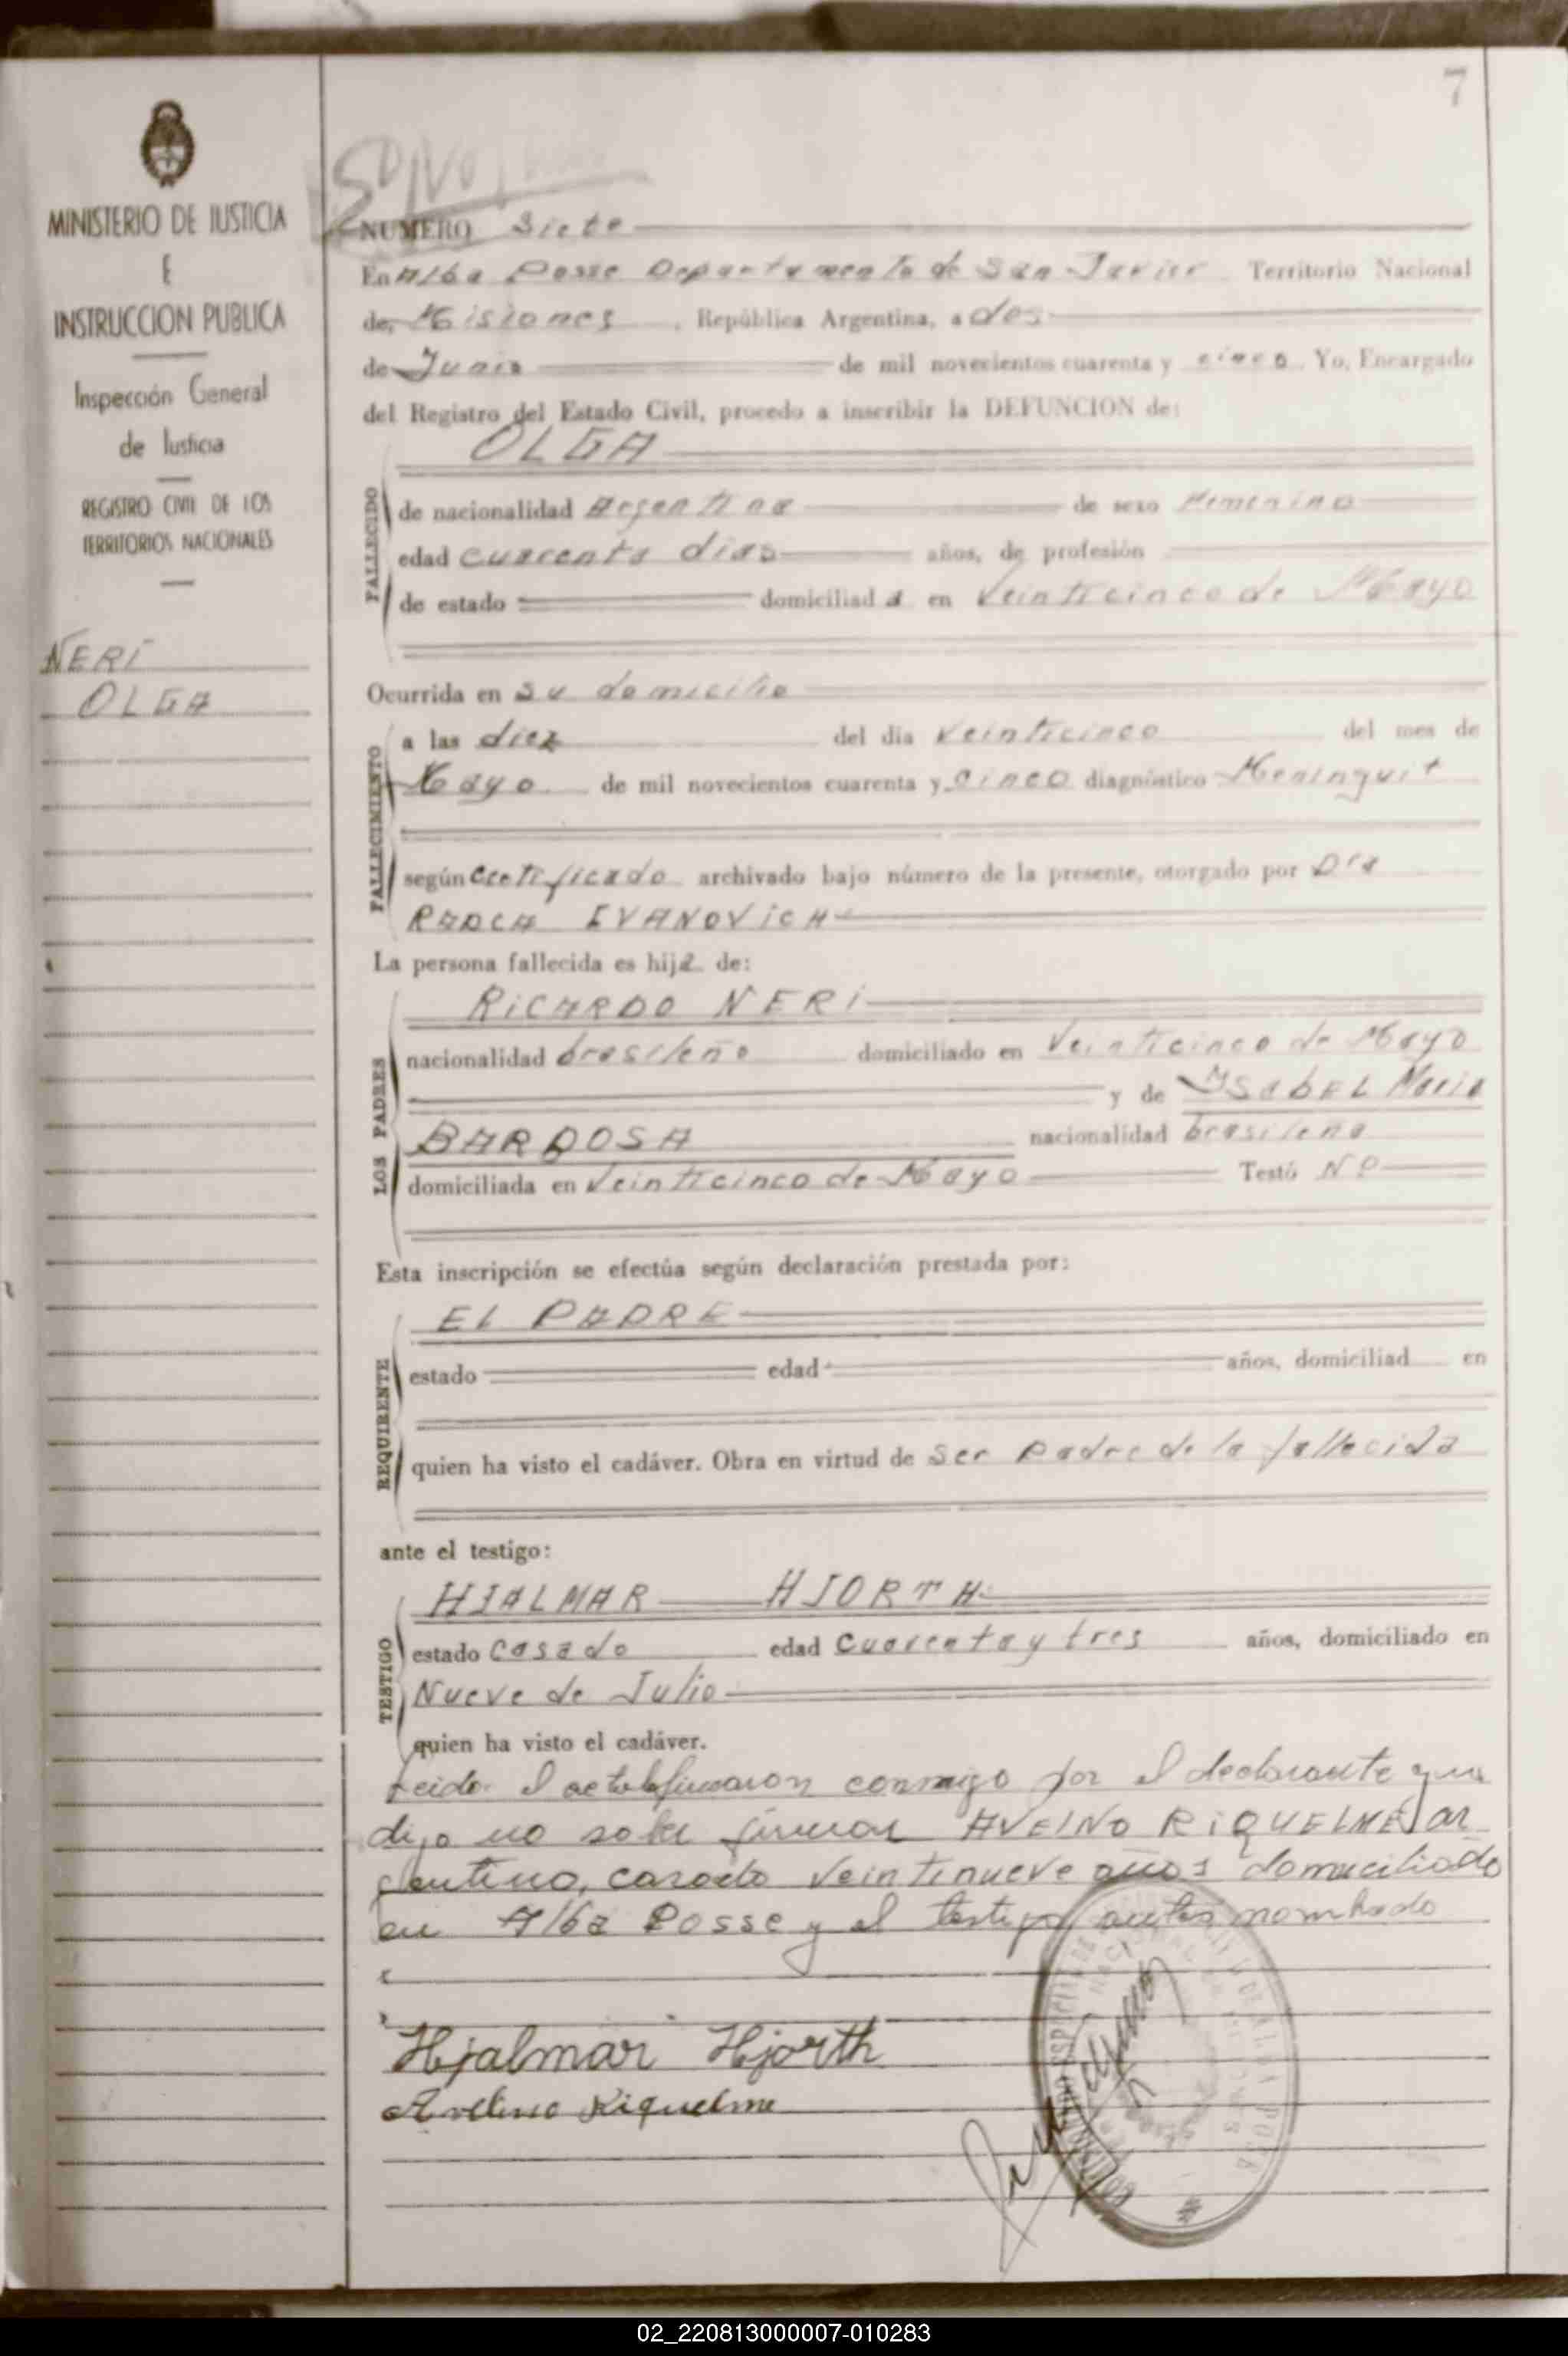 7
MINISTERIO DE JUSTICIA
E
INSTRUCCION PUBLICA
Inspección General
de Justicia
REGISTRO CIVIL DE LOS
TERRITORIOS NACIONALES
NERI
OLGA
NUMERO Siete
En Alba Posse Departamento de San Javier Territorio Nacional
de Misiones, República Argentina, a dos
de Junio de mil novecientos cuarenta y cinco. Yo, Encargado
del Registro del Estado Civil, procedo a inscribir la DEFUNCION de:
OLGA
FALLECIDO
de nacionalidad Argentina de sexo Femenino
edad cuarenta dias años, de profesión
de estado domiciliad a en Veinticinco de Mayo
Ocurrida en su domicilio
FALLECIMIENTO
a las diez del día Veinticinco del mes de
Mayo de mil novecientos cuarenta y cinco diagnóstico Meninguit
según certificado archivado bajo número de la presente, otorgado por Dra
IVANOVICH
La persona fallecida es hija de:
LOS PADRES
RiCARDO NERI
nacionalidad brasileño domiciliado en Veinticinco de Mayo
y de YSABEL Maria
BARBOSA nacionalidad brasileña
domiciliada en Veinticinco de Mayo Testó No
Esta inscripción se efectúa según declaración prestada por:
REQUIRENTE
EL PADRE
estado edad años, domiciliad en
quien ha visto el cadáver. Obra en virtud de ser padre de la fallecida
ante el testigo:
TESTIGO
HJALMAR HJORTH
estado casado edad cuarenta y tres años, domiciliado en
Nueve de Julio
quien ha visto el cadáver.
Leida el acta la firmaron conmigo por el declarante que
dijo no saber firmar AVELNO RiQUELME ar
gentino, casado Veintinueve años domiciliado
en Alba Posse y el testigo antes nombrado
Hjalmar Hjorth
Avelino Riquelme
02_220813000007-010283